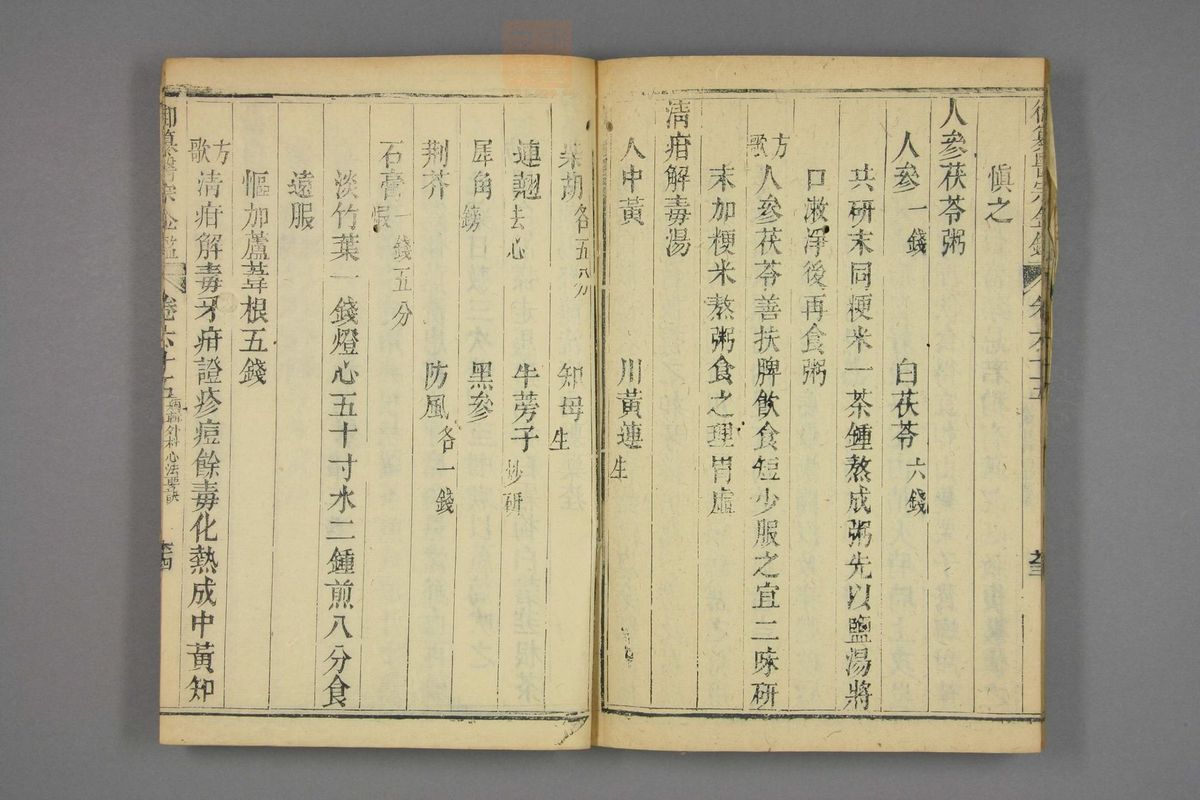 御纂醫宗金鑑 卷六十五 至三
慎之
人參茯苓粥
人參一錢 白茯苓六錢
共研末同粳米一茶鍾熬成粥先以鹽湯將
口漱凈後再食粥
方歌 人參茯苓善扶脾飲食短少服之宜二味硏
末加粳米熬粥食之理胃虛
淸疳解毒湯
人中黃 川黃連生
柴胡各五分 知母生
連翹去心 牛蒡子炒硏
犀角鎊 黑參
荆芥 防風各一錢
石膏煆一錢五分
淡竹葉一錢燈心五十寸水二鍾煎八分食
遠服
慪加蘆葦根五錢
方歌 淸疳解毒牙疳證疹痘餘毒化熱成中黃知
御纂醫宗金鑑 卷六十五 編輯外科心法要訣 至四